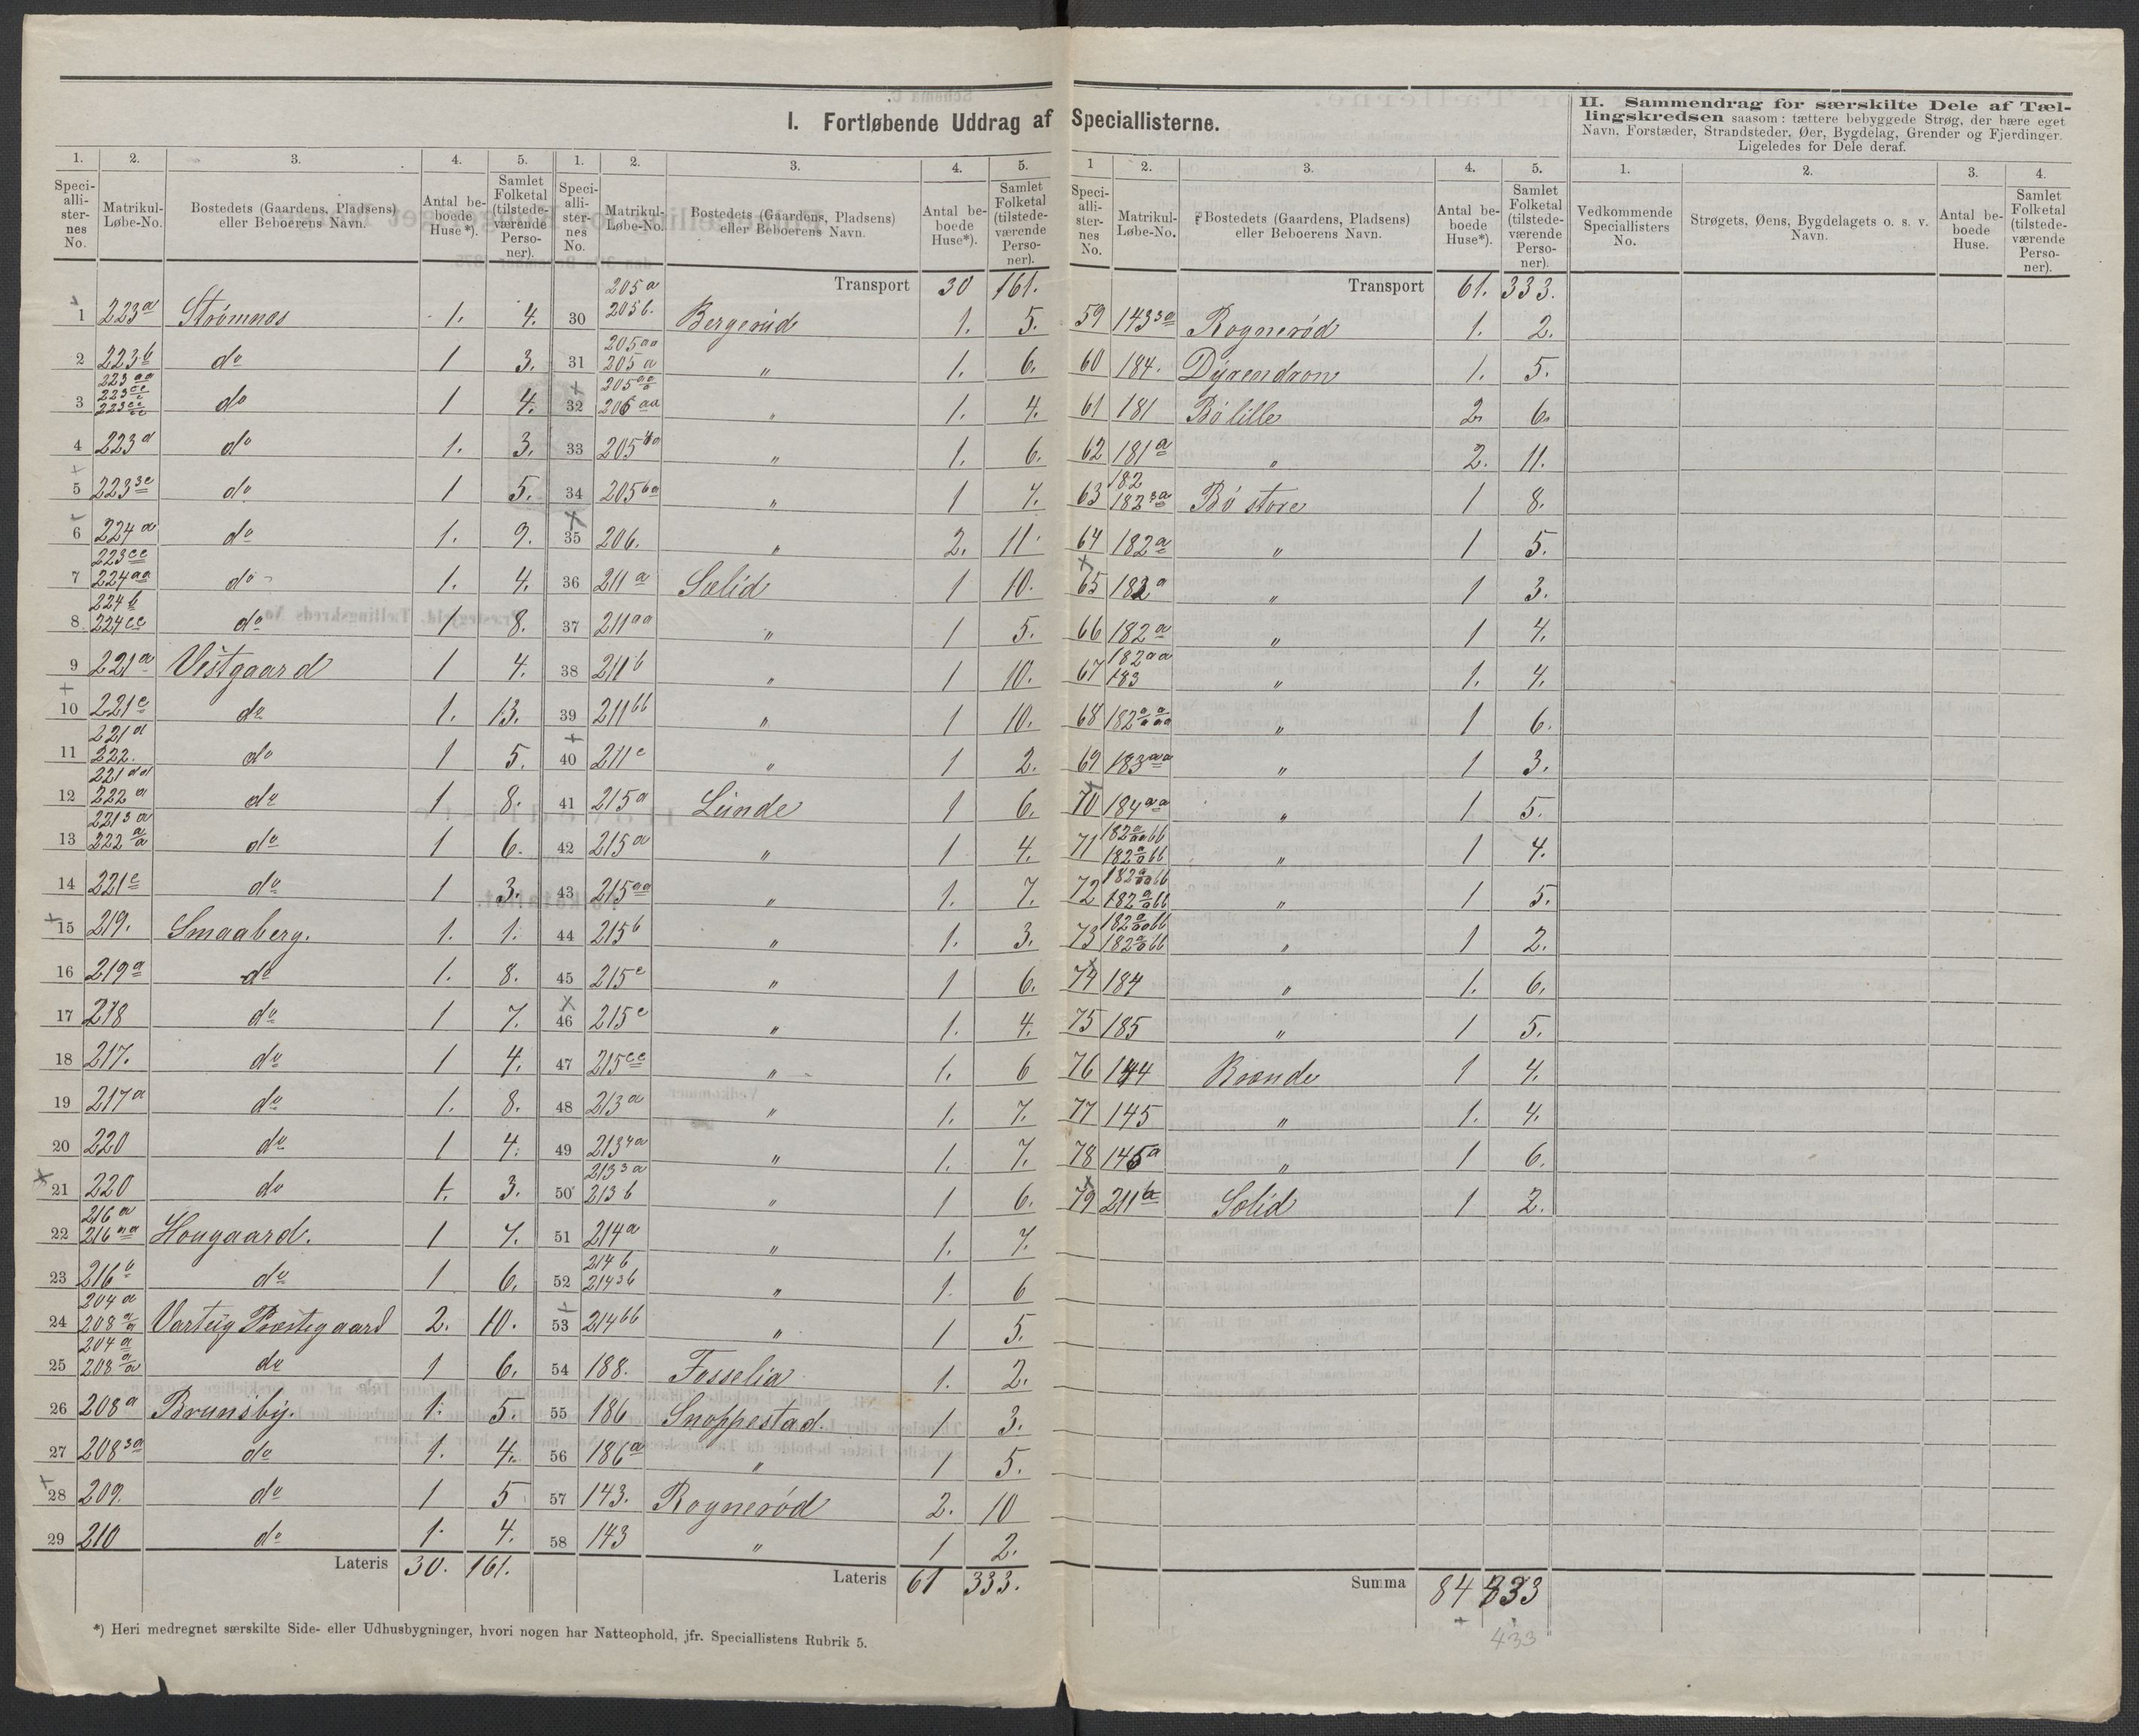 I. Fortløbende Uddrag af Speciallisterne.
1. 2. 3. 4. 5.
Speciallisternes No. Matrikul-Løbe-No. Bostedets (Gaardens, Pladsens) eller Beboerens Navn. Antal beboede Huse*). Samlet Folketal (tilstedeværende Personer).
1 223a Strømnes 1. 4.
2 223b do 1 3.
3 do 1 4.
4 223d do 1. 3.
5 223 3e do 1 5.
6 224a do 1. 9.
7 223ee 224aa do 1. 4.
8 224b 224ee do 1 8.
9 221a Vestgaard 1 4.
10 221c do 1. 13.
11 221d 222. do 1 5.
12 221dd 222a do 1 8.
13 221 3a 222 a/a do 1 6.
14 221e do 1 3.
15 219. Smaaberg. 1. 1.
16 219a do 1. 8.
17 218 do 1 7.
18 217. do 1 4.
19 217a do 1. 8.
20 220 do 1 4.
21 220 do 1. 3.
22 216a 216aa Hougaard. 1 7.
23 216b do 1 6.
24 204a 208 a/a Varteig Præstegaard 2. 10.
25 204a 208 a/a do 1 6.
26 208a Brunsby. 1. 5.
27 208 3a do 1. 4.
28 209. do 1 5
29 210 do 1. 4.
Lateris 30. 161.
1. 2. 3. 4. 5.
Speciallisternes No. Matrikul-Løbe-No. Bostedets (Gaardens, Pladsens) eller Beboerens Navn. Antal beboede Huse*). Samlet Folketal (tilstedeværende Personer).
Transport 30 161.
30 205a 205b. Bergerud 1. 5.
31 205aa 205a " 1. 6.
32 " 1. 4.
33 205 4a " 1. 6.
34 205 6a " 1 7.
35 206. " 2. 11.
36 211a Solid 1 10.
37 211aa " 1 5.
38 211b " 1 10.
39 211bb " 1 10.
40 211c " 1 2.
41 215a Lunde 1 6.
42 215a " 1 4.
43 215aa " 1. 7.
44 215b " 1. 3.
45 215c " 1 6.
46 215c " 1. 4.
47 215cc " 1. 6
48 213a " 1. 7.
49 213 4a " 1. 7.
50 213 3a 213b " 1 6.
51 214a " 1. 7.
52 214b 214 3b " 1. 6
53 214bb " 1 5.
54 188. Fosselia 1. 2.
55 186 Snoppestad. 1 3.
56 186a " 1 5.
57 143. Rognerød 2. 10
58 143 " 1 2.
Lateris 61 333.
1 2. 3. 4. 5.
Speciallisternes No. Matrikul-Løbe-No. Bostedets (Gaardens, Pladsens) eller Beboerens Navn. Antal beboede Huse*). Samlet Folketal (tilstedeværende Personer).
Transport 61. 333.
59 143 3a Rognerød 1. 2.
60 184. Dyrendron 1. 5.
61 181 Bø lille 2. 6.
62 181a " 2. 11.
63 182 182 3a Bø store 1 8.
64 182a " 1 5.
65 182a " 1 3.
66 182a " 1 4.
67 182aa 183 " 1. 4.
68 " 1 6.
69 183aa " 1 3.
70 184aa " 1 5.
71 " 1 4.
72 " 1 5.
73 " 1 2.
74 184 " 1. 6.
75 185 " 1 5.
76 144 Brende 1 4.
77 145 " 1. 4.
78 145a " 1 6.
79 211b Solid 1 2.
Summa 84 433
433
II. Sammendrag for særskilte Dele af Tællingskredsen saasom: tættere bebyggede Strøg, der bære eget Navn, Forstæder, Strandsteder, Øer, Bygdelag, Grender og Fjerdinger. Ligeledes for Dele deraf.
1. 2. 3. 4.
Vedkommende Speciallisters No. Strøgets, Øens, Bygdelagets o. s. v. Navn. Antal beboede Huse. Samlet Folketal (tilstedeværende Personer).
*) Heri medregnet særskilte Side- eller Udhusbygninger, hvori nogen har Natteophold, jfr. Speciallistens Rubrik 5.